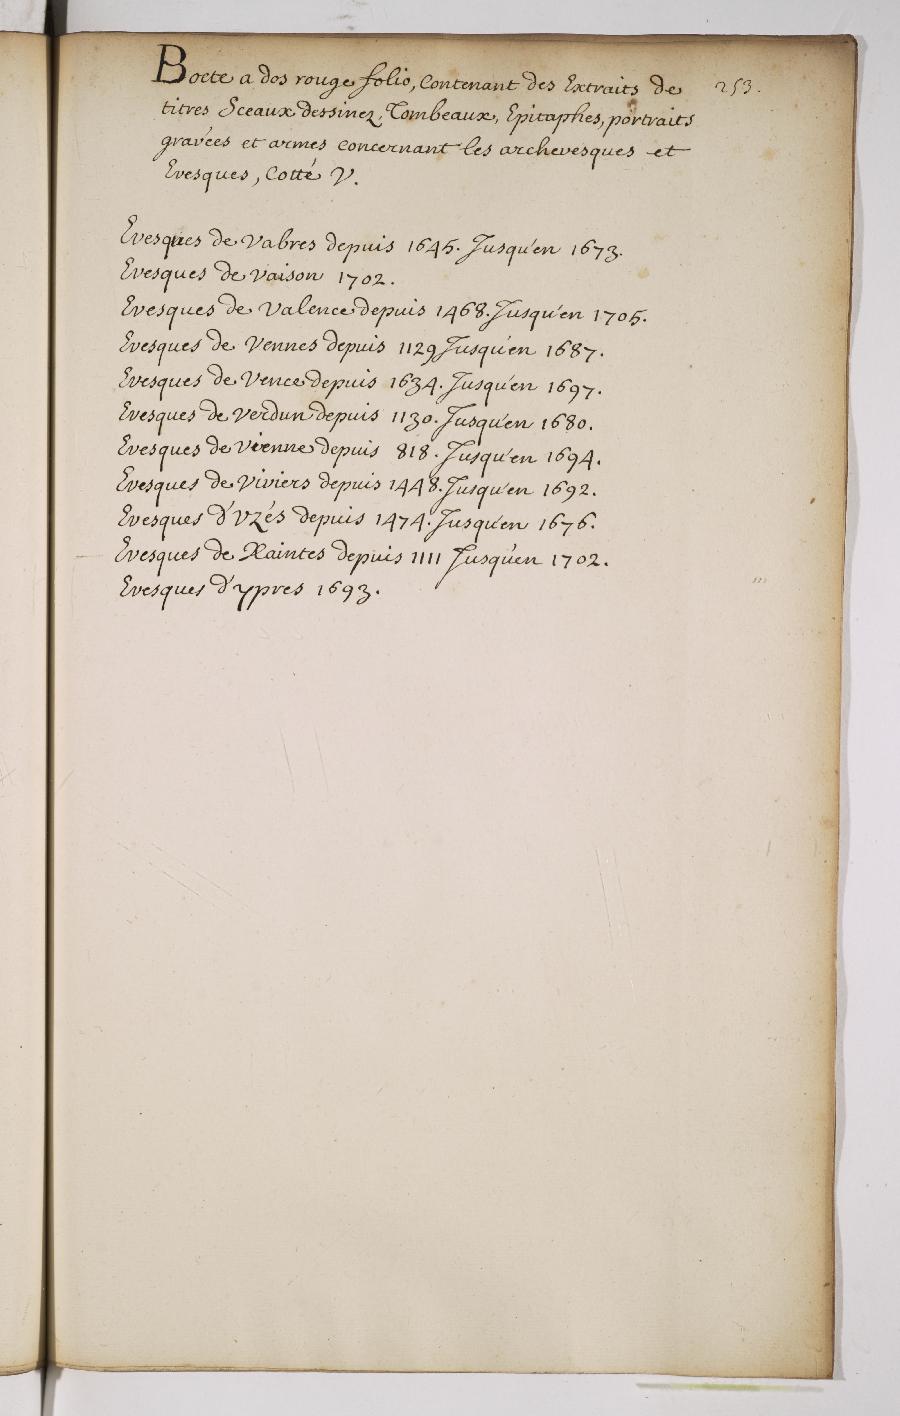 Boete a dos rouge folio, Contenant des Extraits de
253.
titres Sceaux dessinez, Tombeaux, Epitaphes, portraits
gravées et armes concernant les archevesques et
Evesques, Cotté V.
Evesques de Vabres depuis 1645. Jusqu'en 1673.
Evesques de Vaison 1702.
Evesques de Valence depuis 1468. Jusqu'en 1705.
Evesques de Vennes depuis 1129 Jusqu'en 1687.
Evesques de Vence depuis 1634. Jusqu'en 1697.
Evesques de Verdun depuis 1130. Jusqu'en 1680.
Evesques de Vienne depuis 818. Jusqu'en 1694.
Evesques de Viviers depuis 1448. Jusqu'en 1692.
Evesques d'Vzés depuis 1474. Jusqu'en 1676.
Evesques de Xaintes depuis 1111 Jusqu'en 1702.
Evesques d'ypres 1693.